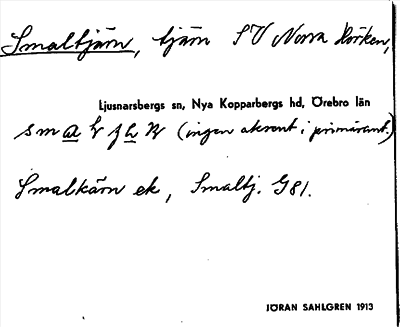 Smaltjärn, tjärn SV Norra Hörken,
Ljusnarsbergs sn, Nya Kopparbergs hd, Örebro län
(ingen akcent i primärant.)
Smalkärn ek, Smaltj. G81.
JÖRAN SAHLGREN 1913